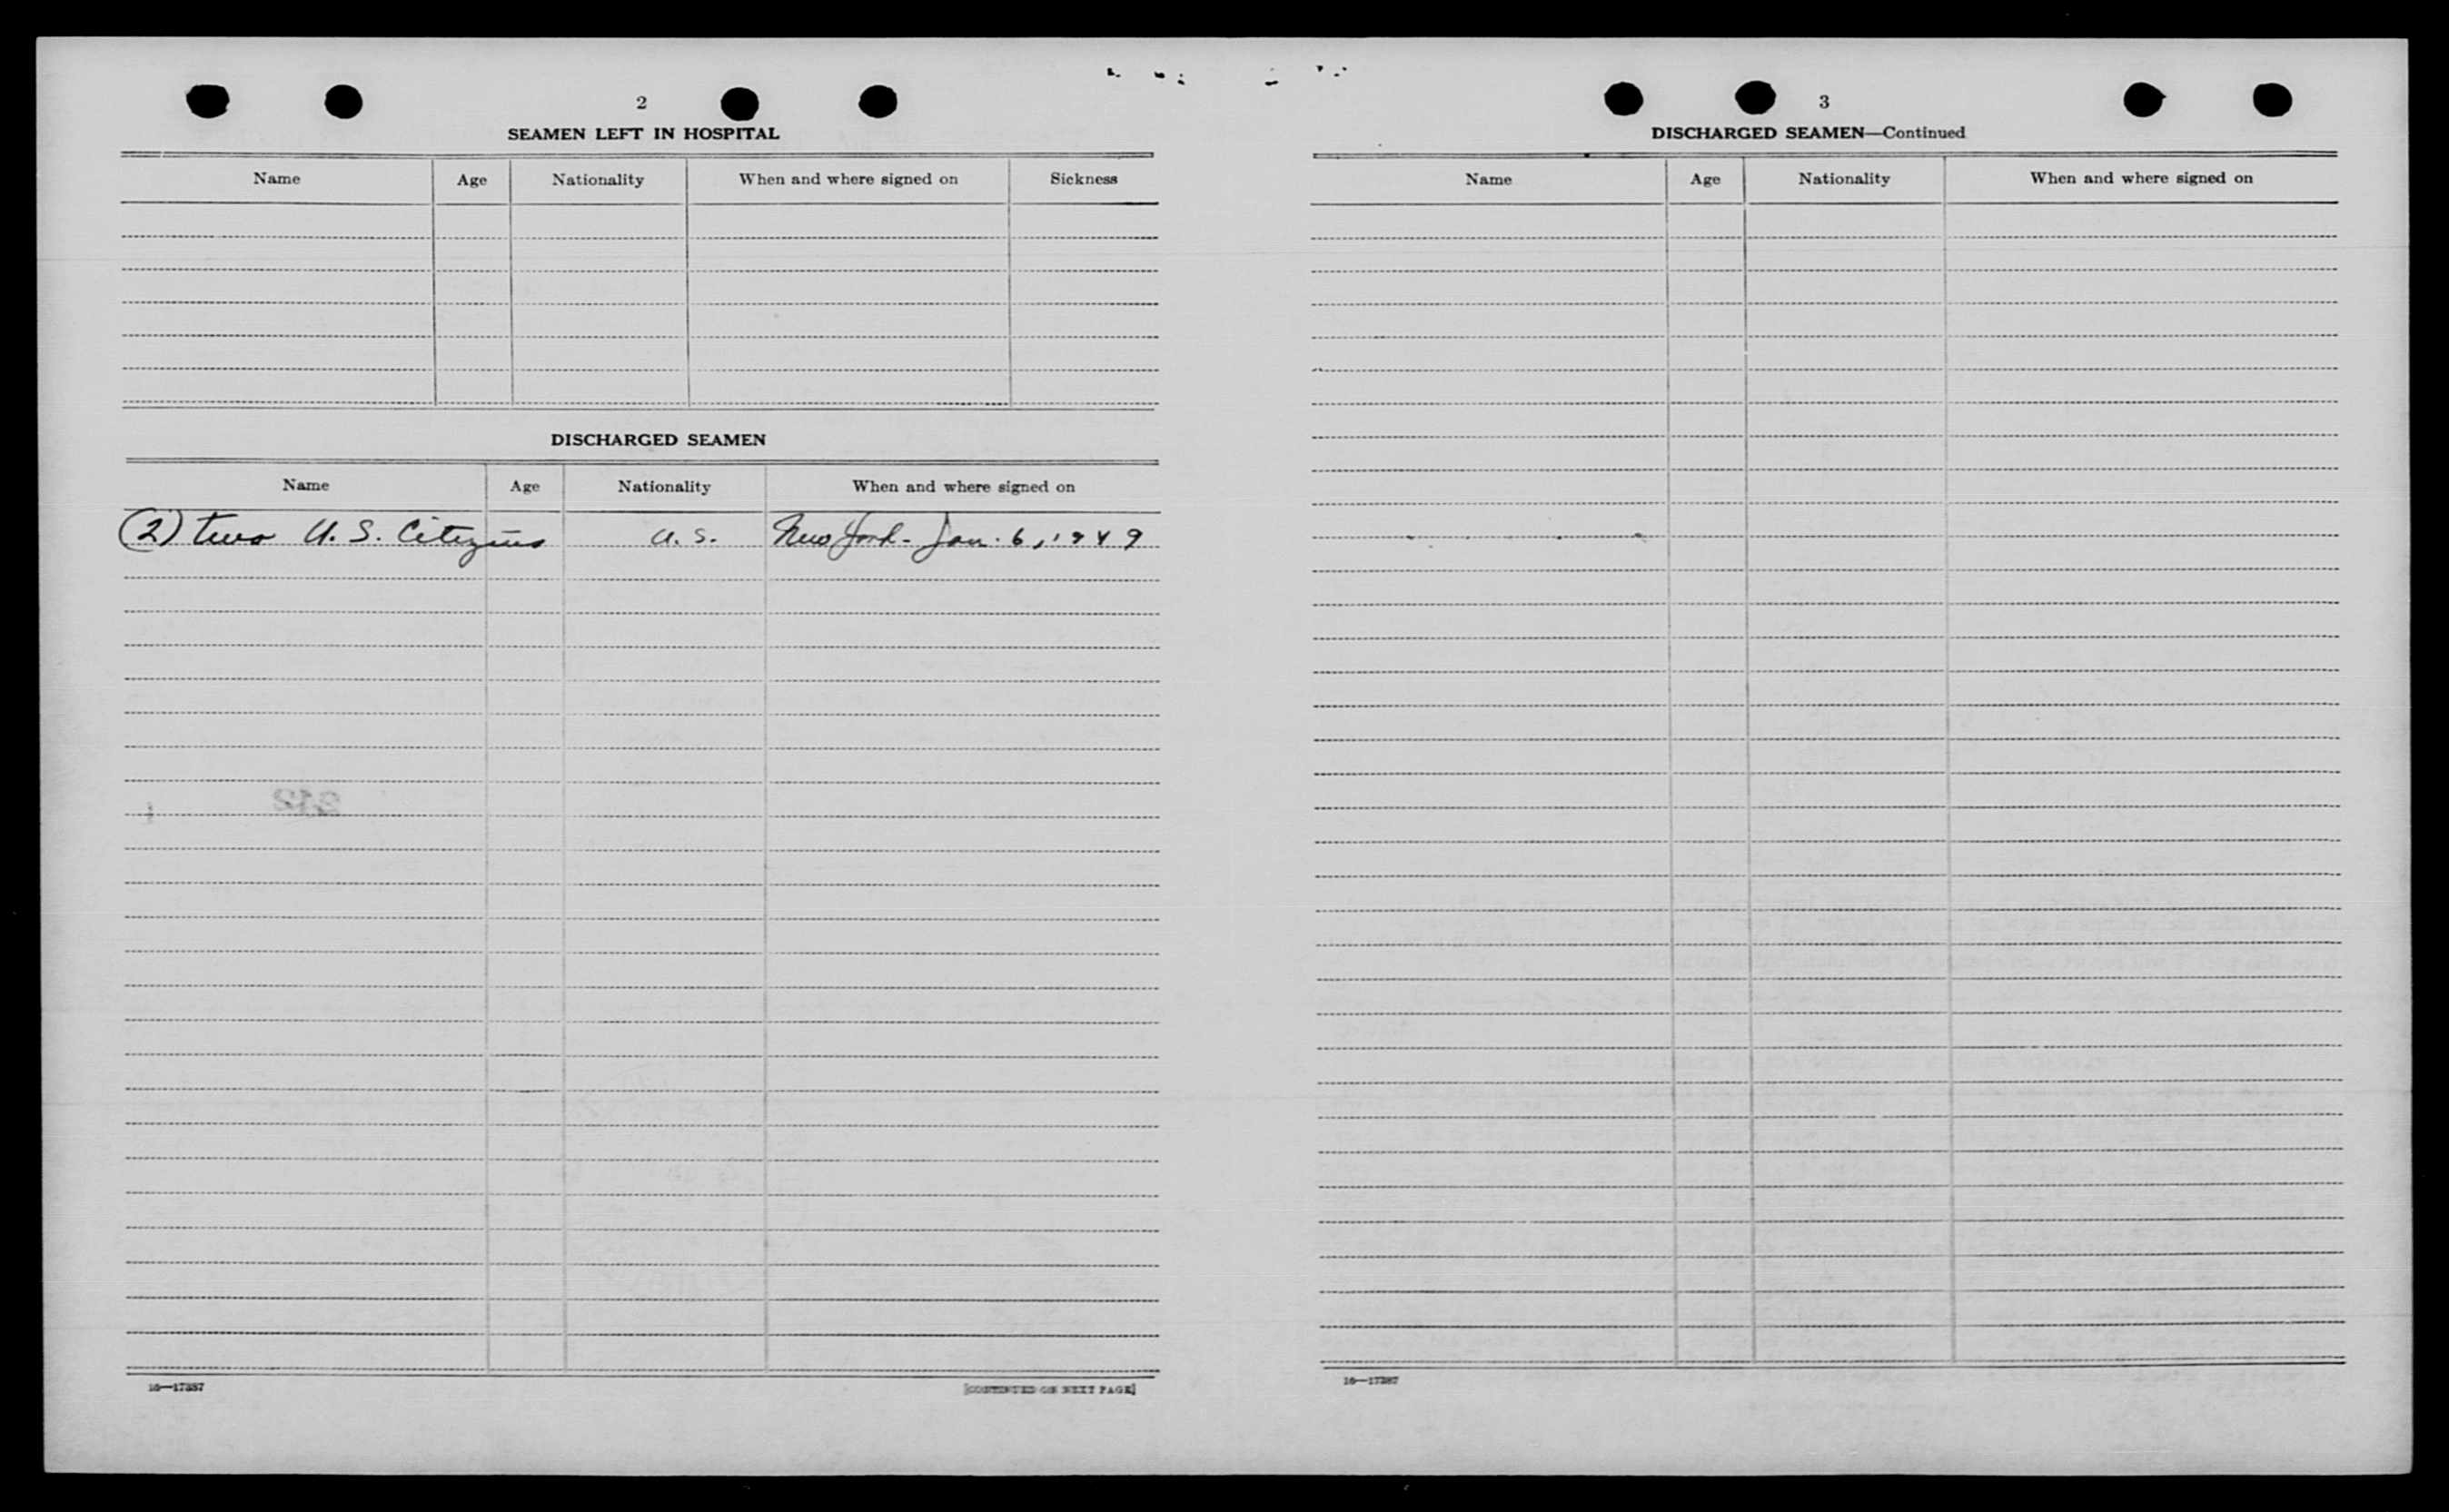 2
SEAMEN LEFT IN HOSPITAL
Name Age Nationality When and where signed on Sickness
DISCHARGED SEAMEN
Name Age Nationality When and where signed on
(2) two U. S. Citizens U. S. New York - Jan. 6, 1949
16—17387
[CONTINUED ON NEXT PAGE]
3
DISCHARGED SEAMEN—Continued
Name Age Nationality When and where signed on
16—17387